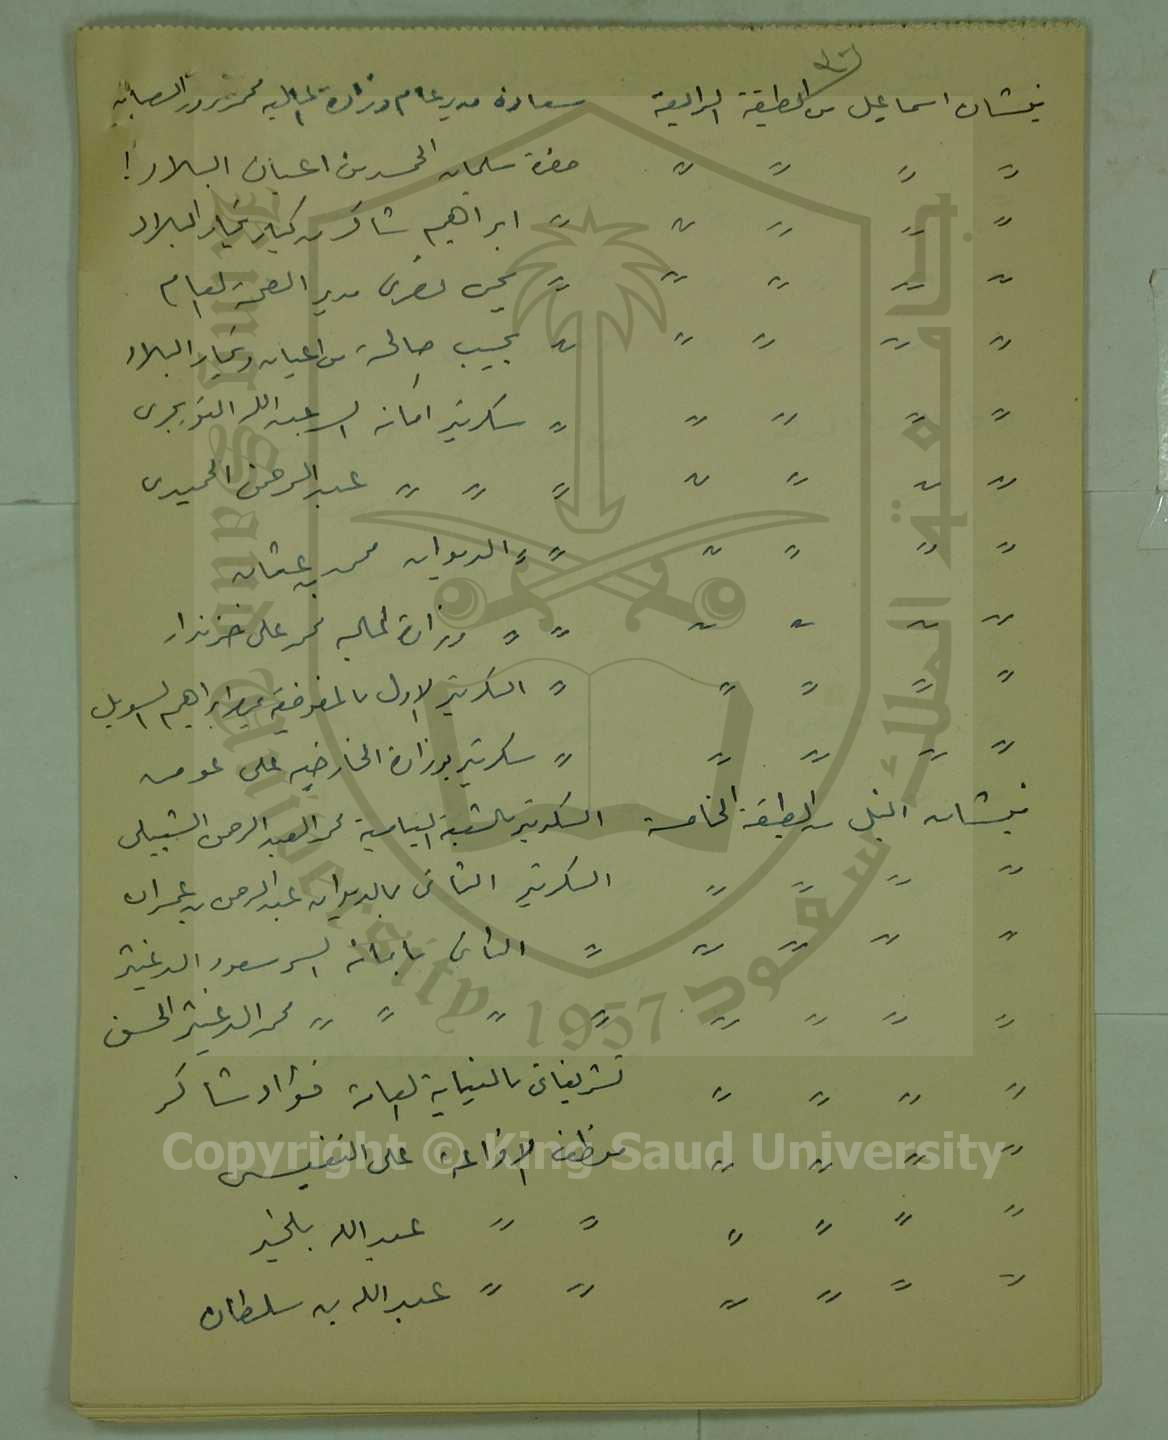 نيشان اسماعيل من الطبقة الرابعة سعادة مدير عام وزارة المالية محمد سرور الصبان
〃 〃 〃 〃 حضرة سليمان الحمد من اعيان البلاد!
〃 〃 〃 〃 〃 ابراهيم شاكر من كبار تجار البلاد
〃 〃 〃 〃 〃 يحيى نصرى مدير الصحة العام
〃 〃 〃 〃 〃 نجيب صالحة من اعيان وتجار البلاد
〃 〃 〃 〃 〃 سكرتير امانة السر عبدالله التويجرى
〃 〃 〃 〃 〃 〃 〃 عبدالرحمن الحميدى
〃 〃 〃 〃 〃 〃 الديوان محمد بن عثمان
〃 〃 〃 〃 〃 〃 وزارة المالية محمد على خزندار
〃 〃 〃 〃 〃 السكرتير الاول بالمفوضية ابراهيم السويل
〃 〃 〃 〃 〃 سكرتير بوزارة الخارجية على عوض
نيشان النيل من الطبقة الخامسة السكرتير بالشعبة السياسية محمد العبد الرحمن الشبيلى
〃 〃 〃 〃 السكرتير الثانى بالديوان عبدالرحمن بن عمران
〃 〃 〃 〃 〃 الثانى بامانة السر سعود الدغيثر
〃 〃 〃 〃 〃 〃 〃 〃 محمد الدغيثر الحسن
〃 〃 〃 〃 تشريفاتى بالنيابة العامة فؤاد شاكر
〃 〃 〃 〃 موظف الاذاعة على النفيسى
〃 〃 〃 〃 〃 〃 عبدالله بلخير
〃 〃 〃 〃 〃 〃 عبدالله بن سلطان
جامعة الملك سعود
King Saud University 1957
Copyright © King Saud University